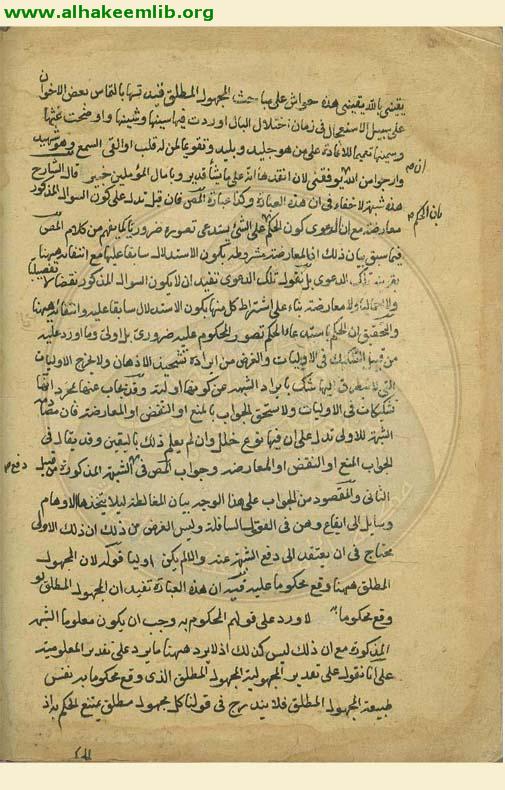 www.alhakeemlib.org
يقيني بالله يقيني هذه حواش على مباحث المجهول المطلق قيدتها بالتماس بعض الاخوان
على سبيل الاستعجال فى زمان اختلال البال اوردت فيها سينها وشينها واوضحت غثها
وسمينها تعميما للافادة على من هو جليد وبليد وتقويما لمن له قلب او القى السمع وهو شهيد
وارجو من الله توفيقى لان انقدها انه على ما يشاء قدير وبامال المؤملين خبير قال الشارح
هذه شبهة لاخفاء فى ان هذه العبارة وكذا عبارة المص فان قيل تدل على كون السوال المذكور
بان الحكم
معارضة مع ان الدعوى كون الحكم على الشئ يستدعى تصوره ضروريا كما يفهم من كلام المص
فيما سبق بيان ذلك ان المعارضة مشروطة بكون الاستدلال سابقا عليها مع انتفائه ههنا
تلك الدعوى بل نقول تلك الدعوى تفيد ان لا يكون السوال المذكور نقضا تفصيليا
ولا اجماليا ولا معارضة بناء على اشتراط كل منها بكون الاستدلال سابقا عليه وانتفائه ههنا
والتحقيق ان الحكم باستدعاء الحكم تصور المحكوم عليه ضرورى بل اولى وما اورد عليه
من قبيل التشكيك فى الاوليات والغرض من ايراده تشحيذ الاذهان ولا تخرج الاوليات
التى اليها شك بايراد الشبهة من كونها اولية وقد يجاب عنها بمجرد انها
تشكيكات فى الاوليات ولا تستحق للجواب بالمنع او النقض او المعارضة فان مصادمة
الشبهة للاولى تدل على ان فيها نوع خلل وان لم يعلم ذلك باليقين وقد يقال فى
الجواب المنع او النقض او المعارضة وجواب المص فى دفع الشبهة المذكورة من قبيل
الثانى والمقصود من الجواب على هذا الوجه بيان المغالطة ليلا يتخذها الاوهام
وسايل الى ايقاع وهن فى العقول السافلة وليس الغرض من ذلك ان ذلك الاولى
محتاج فى ان يعتقد الى دفع الشبهة عنه والا لم يكن اوليا قوله لان المجهول
المطلق ههنا وقع محكوما عليه قيل ان هذه العبارة تفيد ان المجهول المطلق لو
وقع محكوما به لا ورد على قولهم المحكوم به وجب ان يكون معلوما الشبهة
المذكورة مع ان ذلك ليس كذلك اذ لا يرد ههنا ما يرد على تقدير المعلومية
على انا نقول على تقدير المجهولية المجهول المطلق الذى وقع محكوما به نفس
طبيعة المجهول المطلق فلا يندرج فى قولنا كل مجهول مطلق يمتنع الحكم به اذ